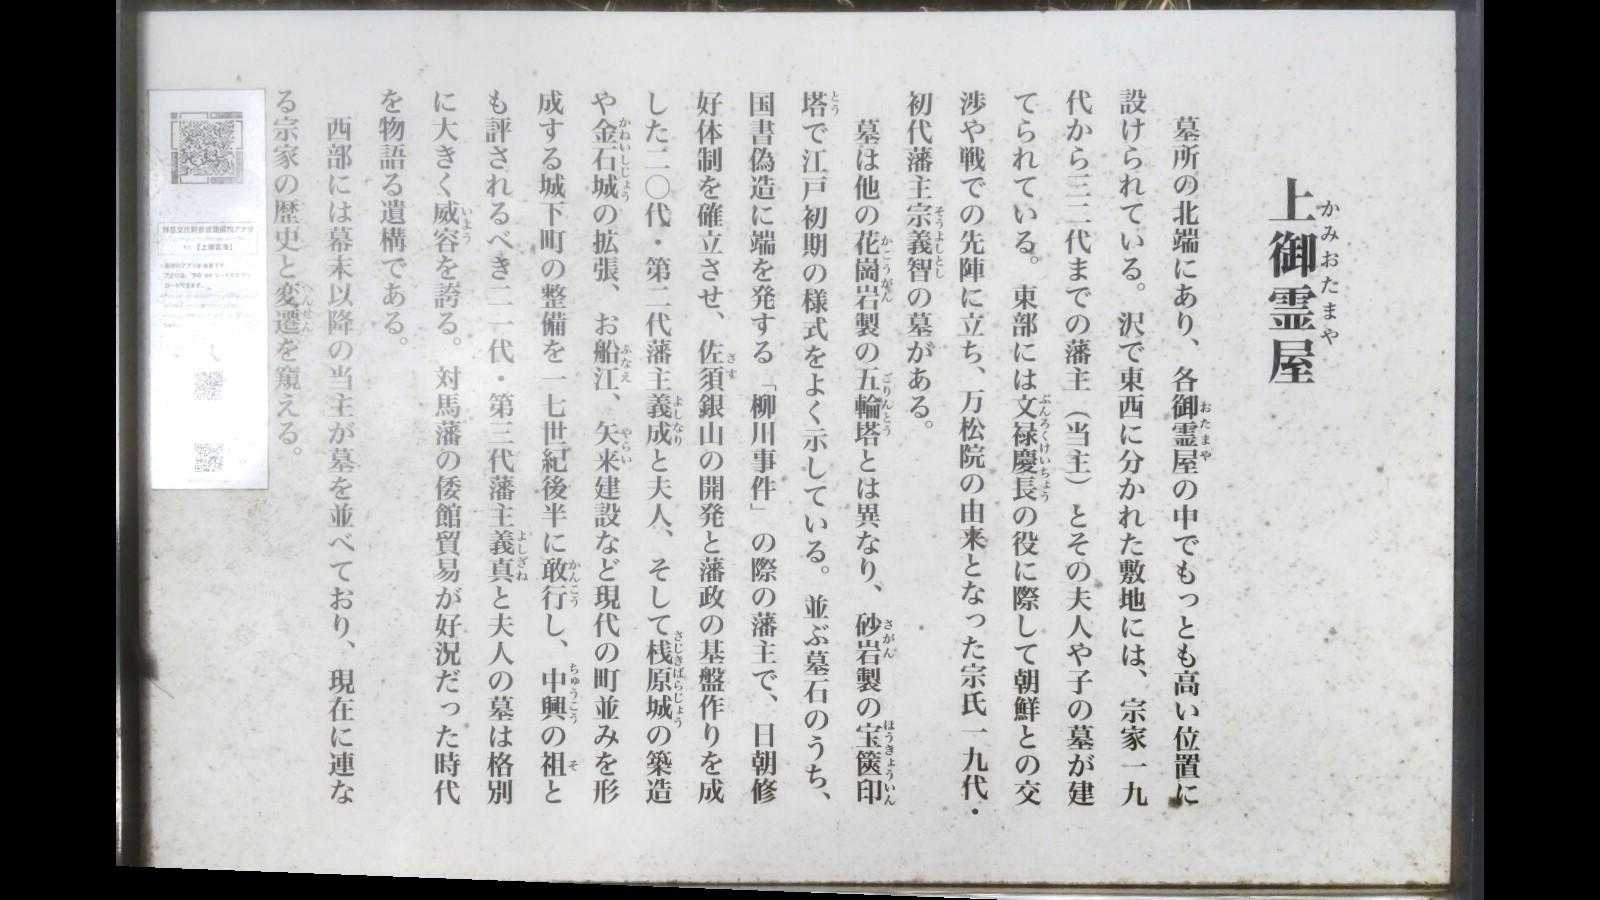 上御霊屋
かみおたまや
墓所の北端にあり、各御霊屋の中でもっとも高い位置に
おたまや
設けられている。沢で東西に分かれた敷地には、宗家一九
代から三二代までの藩主（当主）とその夫人や子の墓が建
てられている。東部には文禄慶長の役に際して朝鮮との交
ぶんろくけいちょう
渉や戦での先陣に立ち、万松院の由来となった宗氏一九代・
初代藩主宗義智の墓がある。
そうよしとし
墓は他の花崗岩製の五輪塔とは異なり、砂岩製の宝篋印
かこうがん ごりんとう さがん ほうきょういん
塔で江戸初期の様式をよく示している。並ぶ墓石のうち、
とう
国書偽造に端を発する「柳川事件」の際の藩主で、日朝修
好体制を確立させ、佐須銀山の開発と藩政の基盤作りを成
さす
した二〇代・第二代藩主義成と夫人、そして桟原城の築造
よしなり さじきばらじょう
や金石城の拡張、お船江、矢来建設など現代の町並みを形
かねいしじょう ふなえ やらい
成する城下町の整備を一七世紀後半に敢行し、中興の祖と
かんこう ちゅうこう そ
も評されるべき二一代・第三代藩主義真と夫人の墓は格別
よしざね
に大きく威容を誇る。対馬藩の倭館貿易が好況だった時代
いよう
を物語る遺構である。
西部には幕末以降の当主が墓を並べており、現在に連な
る宗家の歴史と変遷を窺える。
へんせん